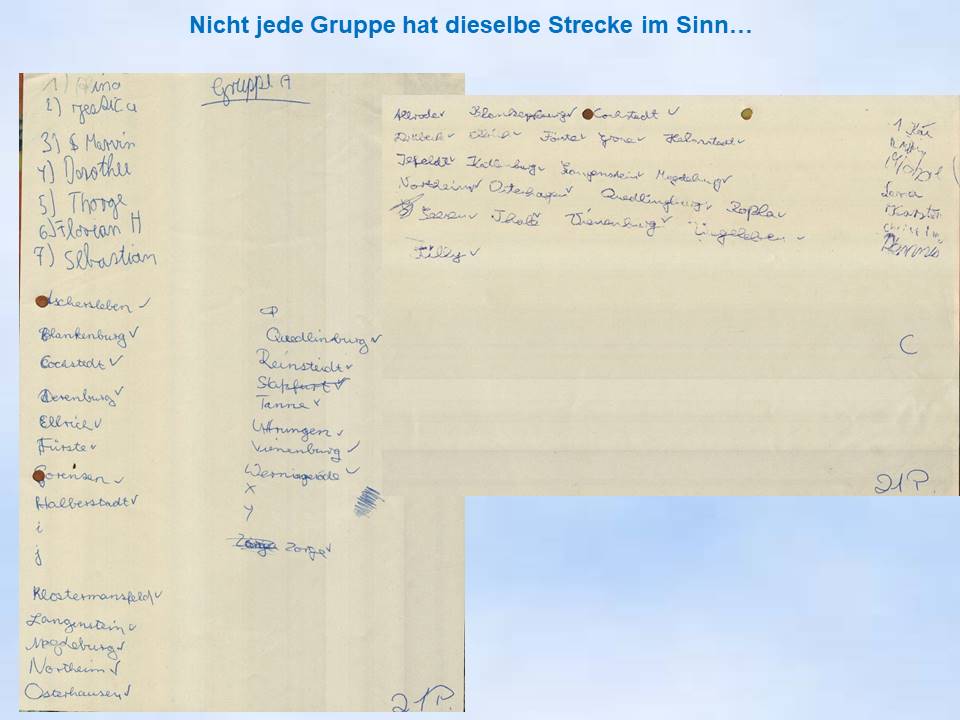 Nicht jede Gruppe hat dieselbe Strecke im Sinn…
Gruppe A
1) Nina
2) Jessica
3) Marvin
4) Dorothee
5) Thorge
6) Florian H
7) Sebastian
Aschersleben ✓
Blankenburg ✓
Cochstedt ✓
Derenburg ✓
Ellrich ✓
Fürste ✓
Gorensen ✓
Halberstadt ✓
i
j
Klostermansfeld ✓
Langenstein ✓
Magdeburg ✓
Northeim ✓
Osterhausen ✓
P
Quedlinburg ✓
Reinstedt ✓
Staßfurt ✓
Tanne ✓
Uftrungen ✓
Vienenburg ✓
Wernigerode ✓
X
Y
Zorge Zorge ✓
21 P.
Allrode ✓ Blankenburg ✓ Cochstedt ✓
Drübeck ✓ Ellrich ✓ Förste ✓ Grone ✓ Helmstedt ✓
Ilfeldt ✓ Katlenburg ✓ Langenstein ✓ Magdeburg ✓
Northeim ✓ Osterhagen ✓ Quedlingburg ✓ Ropla ✓
Seesen ✓ Thale ✓ Vienenburg ✓ Üngeleben ✓
Zilly ✓
1 Kai
Michael
Lena
Karsten
Dennis
C
21 P.